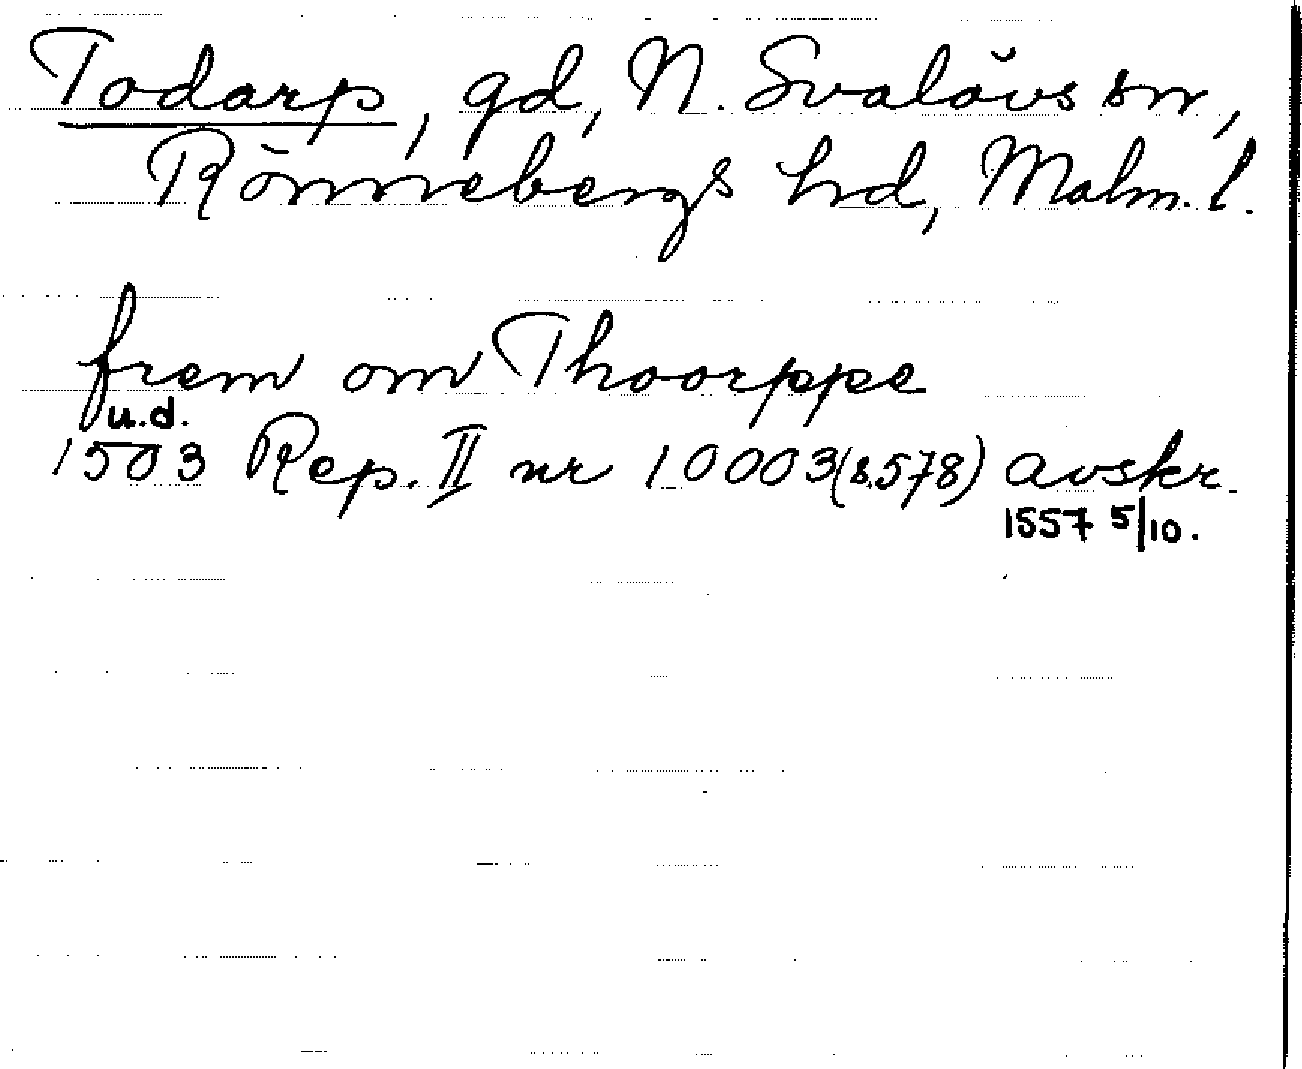 Todarp, gd, N. Svalövs sn,
Rönnebergs hd, Malm. l.
frem om Thoorppe
u.d.
1503 Rep. II nr 10003 (s. 578) avskr.
1557 5/10.